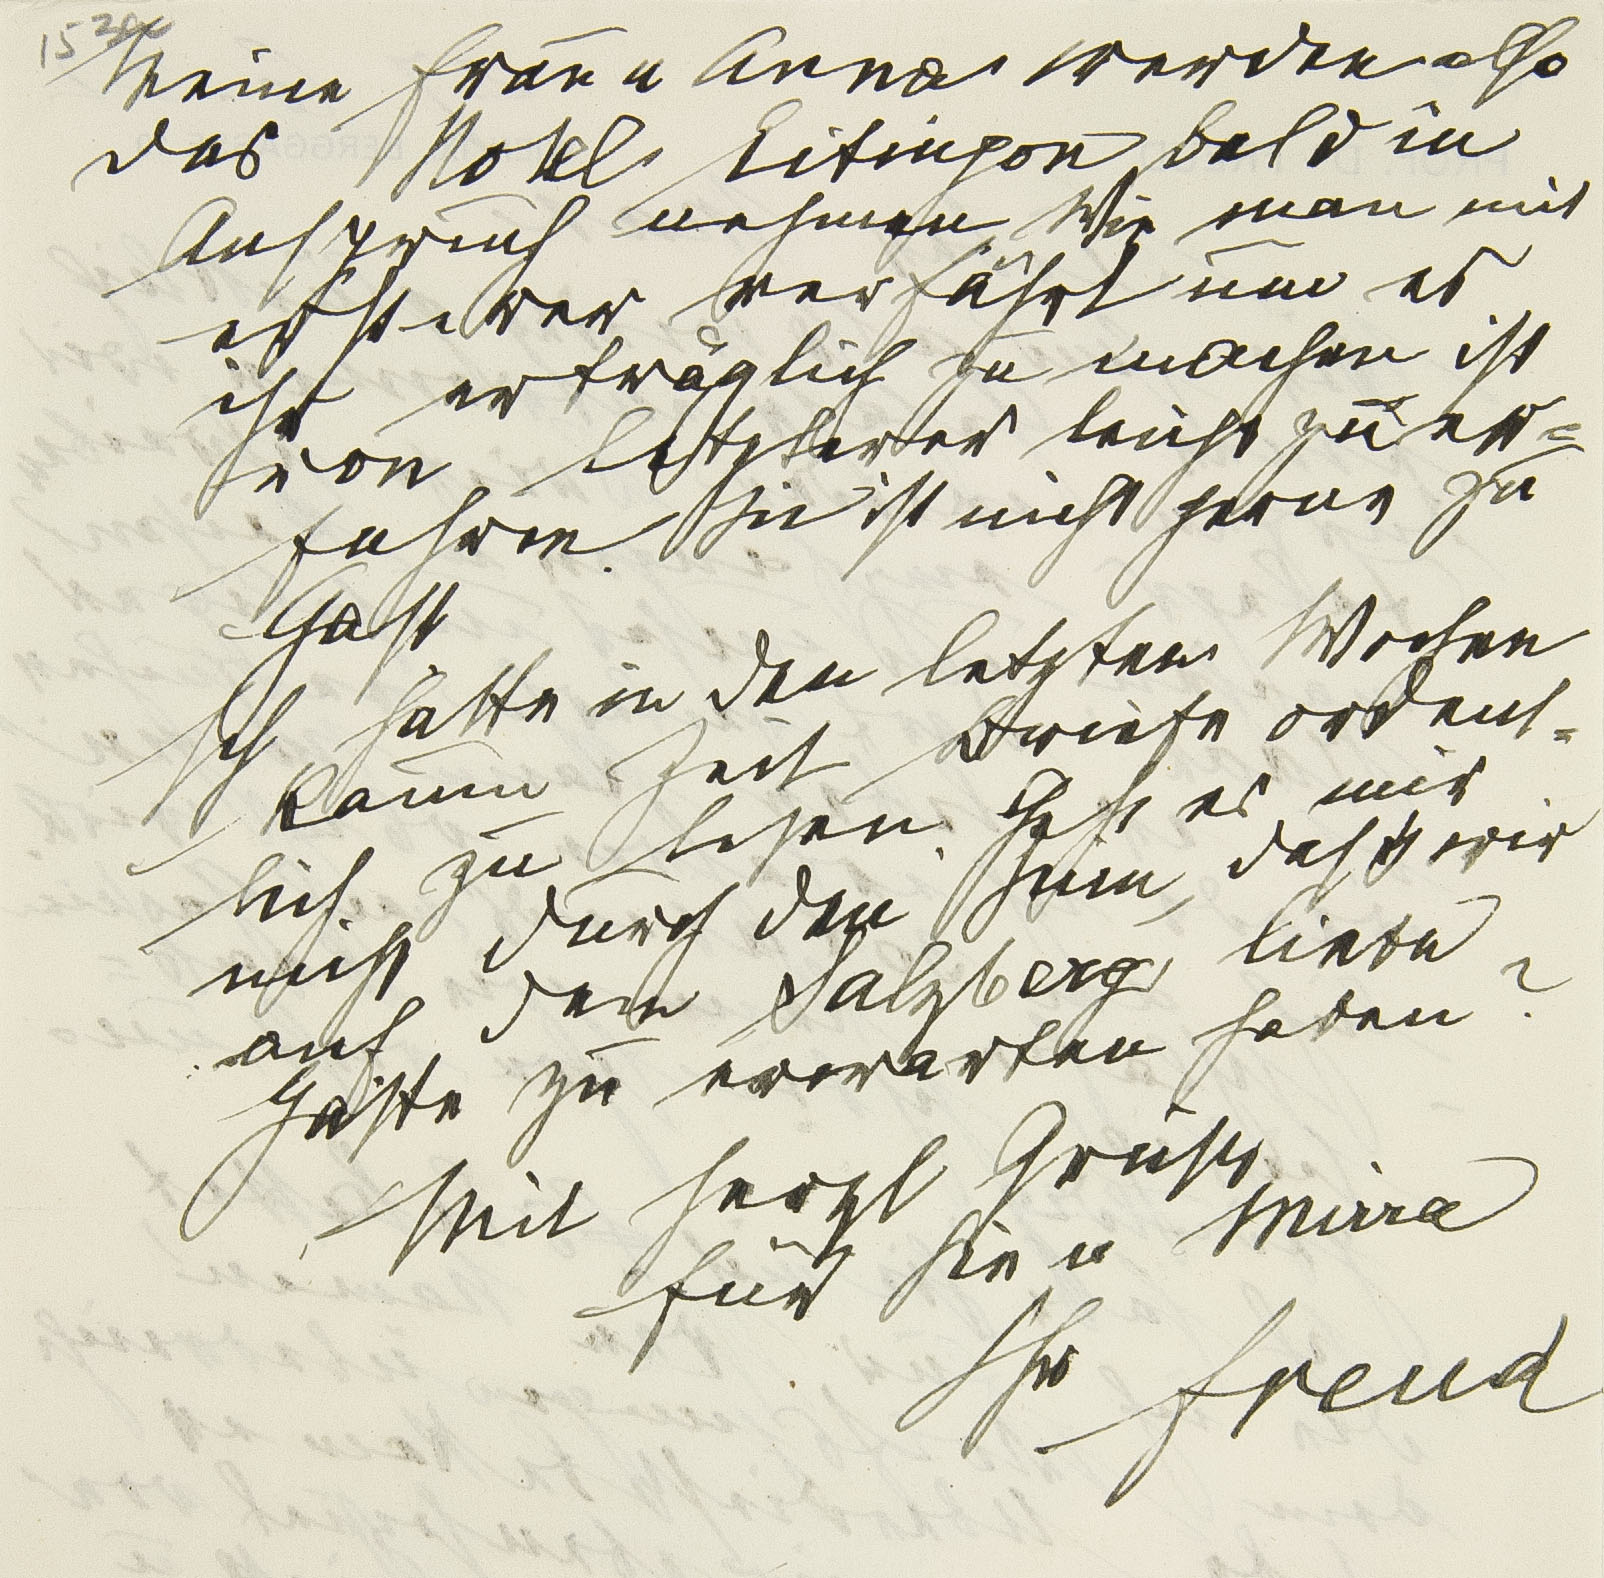 Meine Frau u Anna werden also
das Hotel Eitingon bald in
Anspruch nehmen. Wie man mit
ersterer verfährt um es
ihr erträglich zu machen ist
von letzterer leicht zu er=
fahren. Sie ist nicht gerne zu
Gast
Ich hatte in den letzten Wochen
kaum Zeit Briefe ordent=
lich zu lesen. Geht es mir
nicht durch den Sinn, daß wir
auf dem Salzberg liebe
Gäste zu erwarten haben?
Mit herzl Gruß
für Sie u Mirra
Ihr Freud